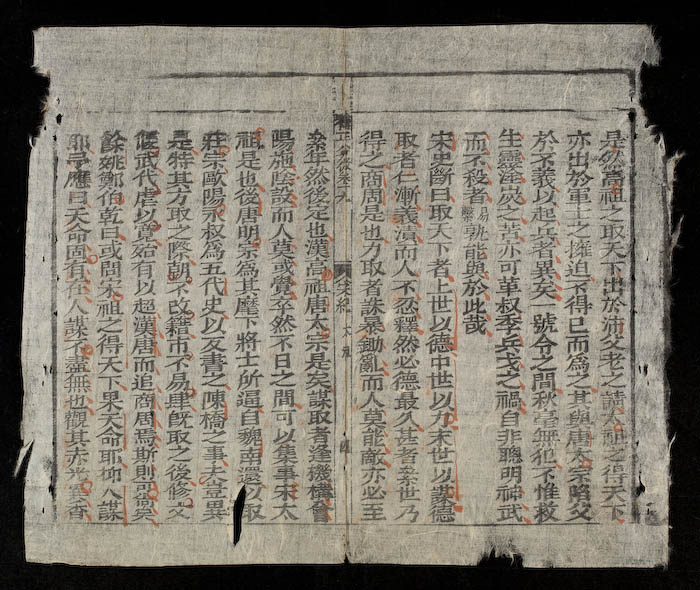 是然高祖之取天下出於沛父老之請太祖之得天下
亦出於軍士之擁迫不得已而爲之其與唐太宗陷父
於不義以起兵者異矣號令之間秋毫無犯不惟救
生靈塗炭之苦亦可革叔季兵戈之禍自非聰明神武
而不殺者易繫孰能與於此哉
宋史斷曰取天下者上世以德中世以力末世以謀德
取者仁漸義漬而人不忍釋然必德最久甚者絫世乃
得之商周是也力取者誅暴鋤亂而人莫能敵亦必至
絫年然後定也漢高祖唐太宗是矣謀取者逢機構會
陽施陰設而人莫或覺卒然不日之間可以集事宋太
祖是也後唐明宗爲其麾下將士所逼自魏南還以取
莊宗歐陽永叔爲五代史以反書之陳橋之事夫豈異
是特其方取之際朝不改籍市不易肆旣取之後修文
偃武代虐以寬始有以超漢唐而追商周焉斯則可尚矣
餘姚鄭伯乾曰或問宋祖之得天下果天命耶抑人謀
耶予應曰天命固有在人謀不盡無也觀其赤光異香